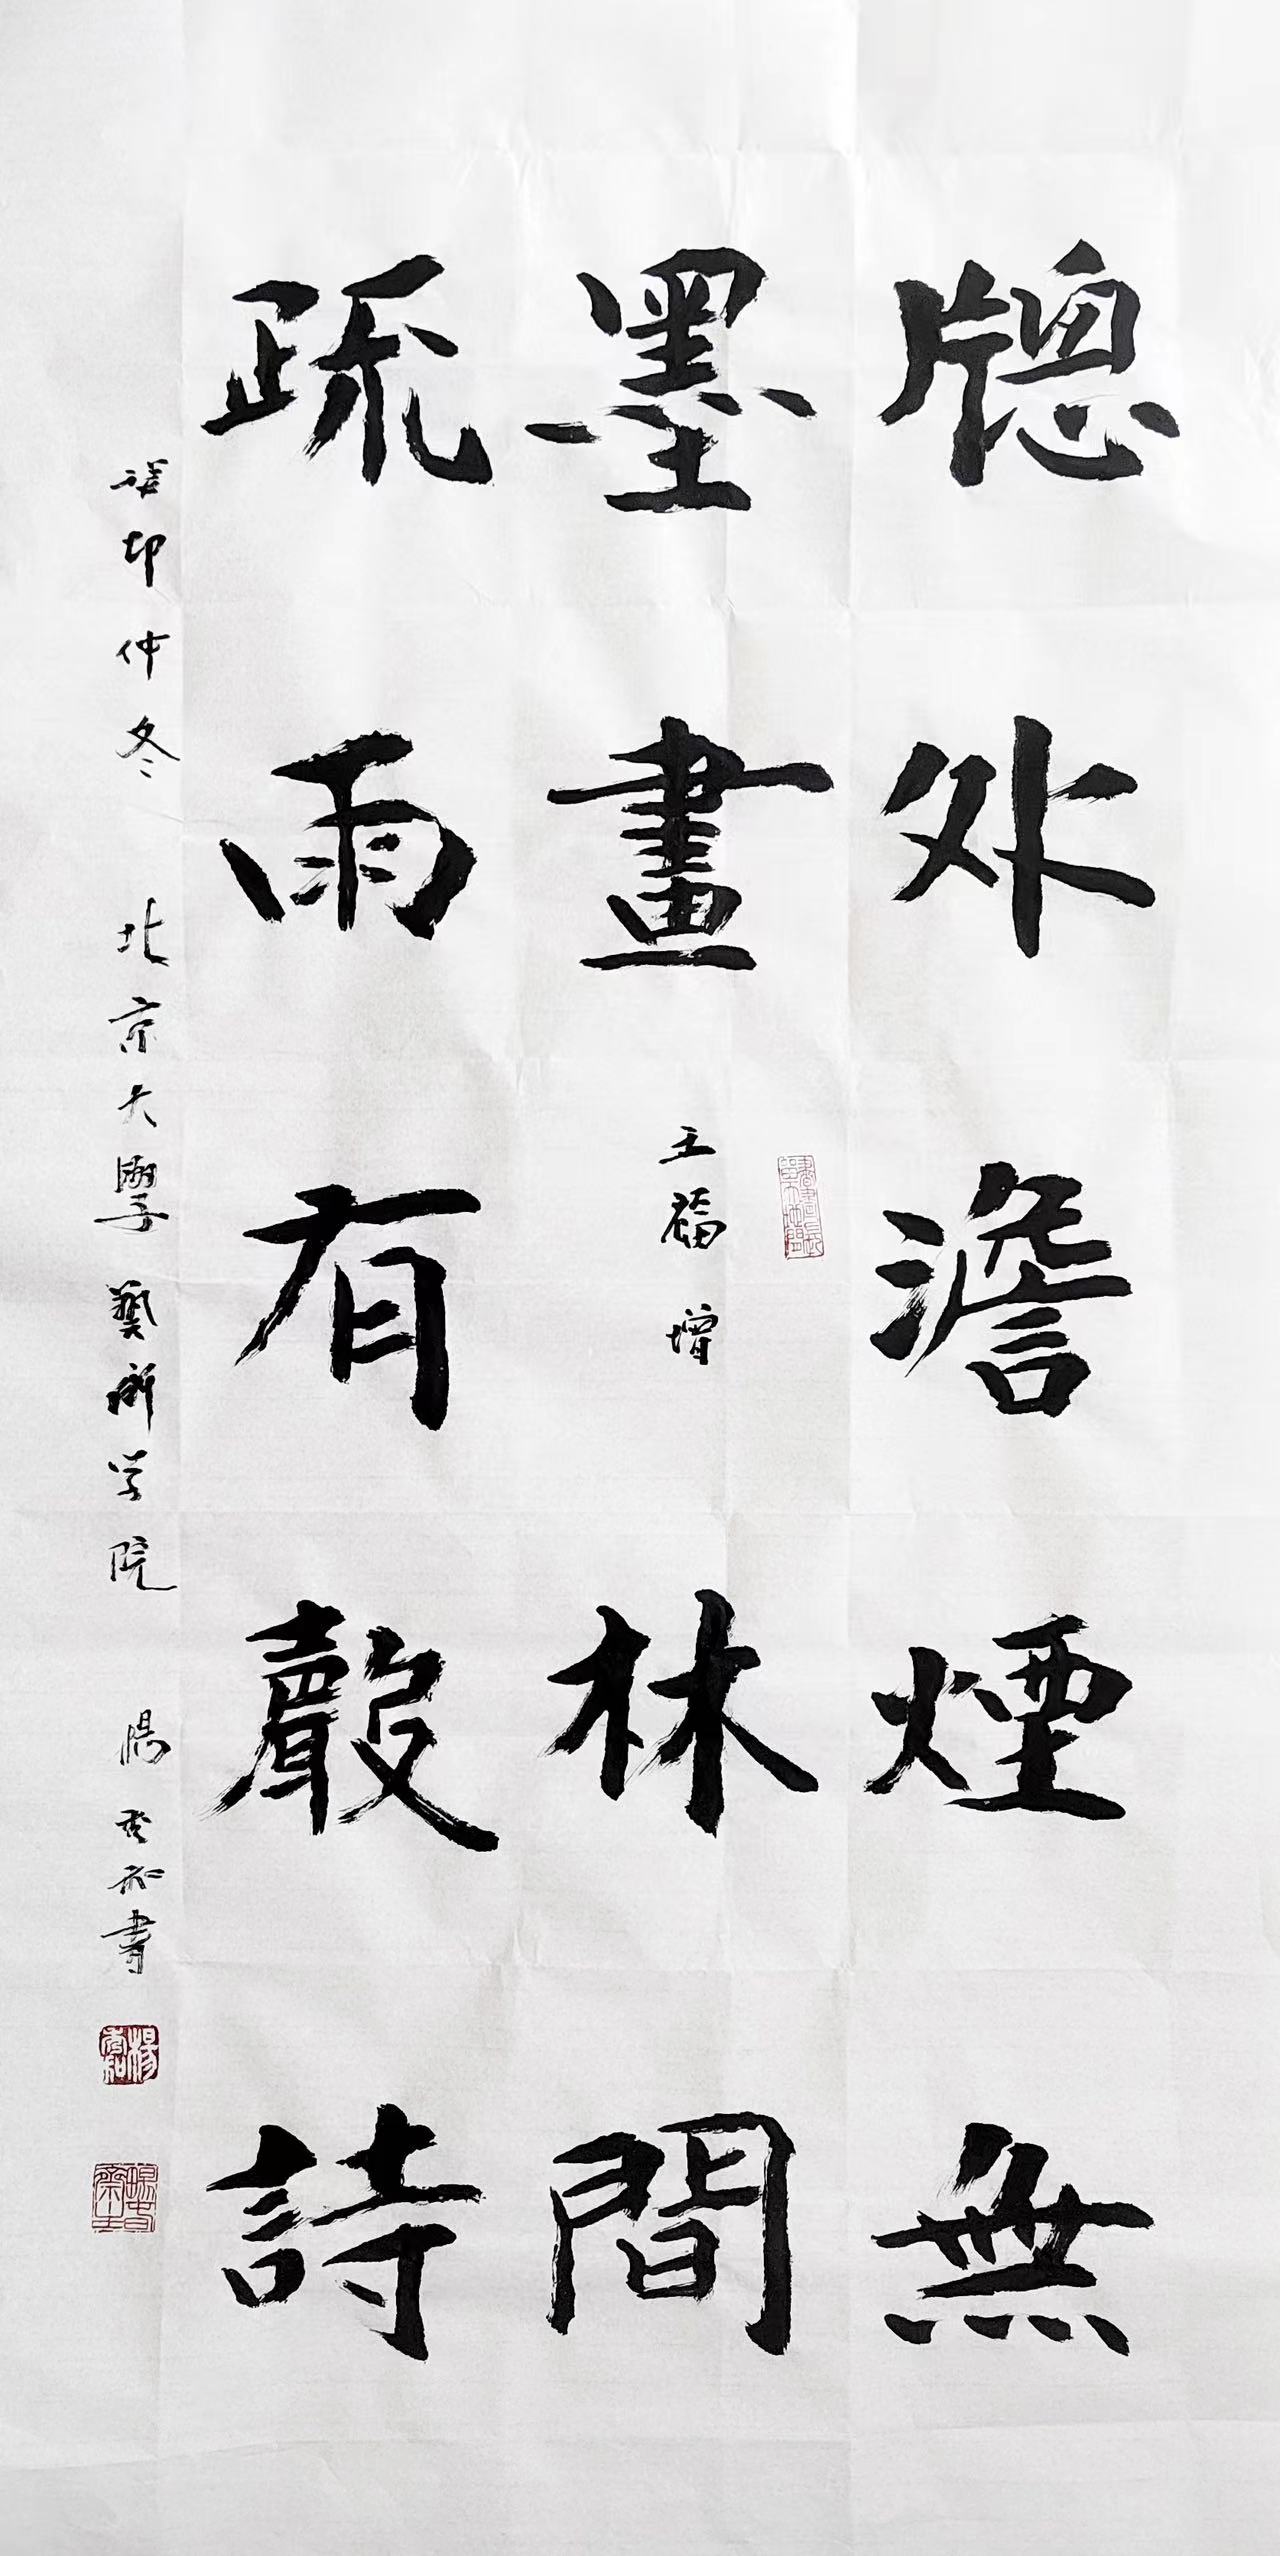 牕外澹煙無
墨畫
王福增
林間
疏雨有聲詩
癸卯仲冬 北京大學藝術学院 楊秀和書